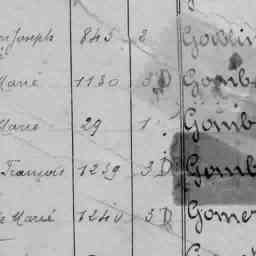 Joseph 845 2 Goblin
Marie 1130 3 D Gomb
Marie 29 1 Gomb
François 1239 3 D Gomb
Marie 1240 3 D Gomer